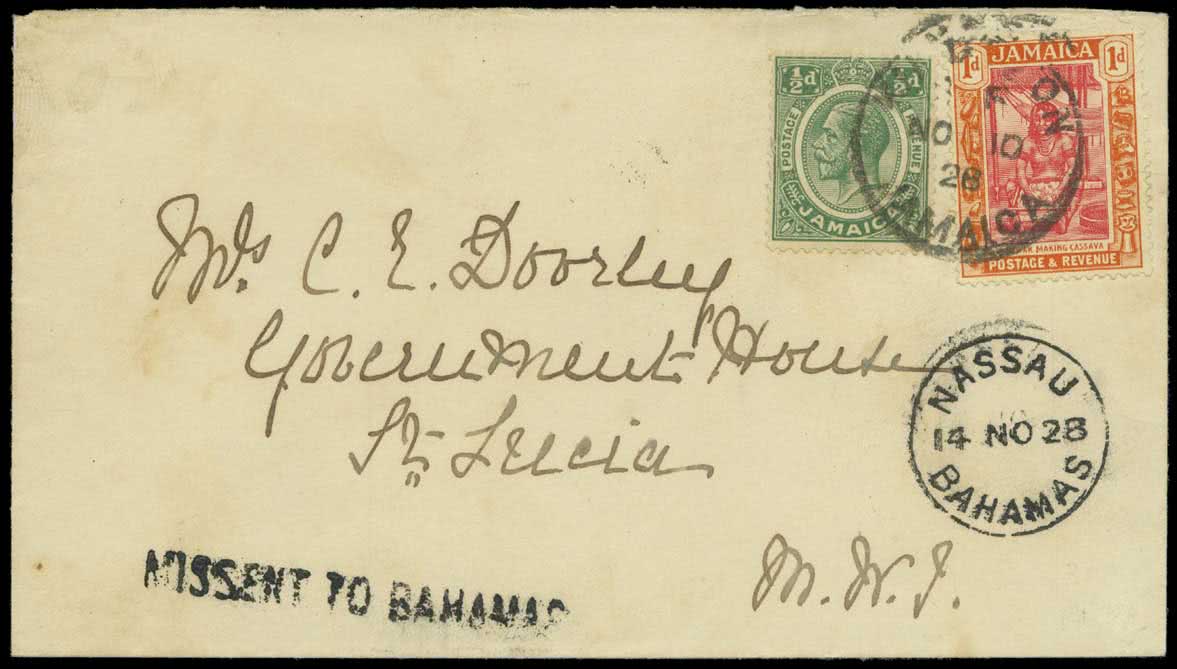 ½d ½d
POSTAGE REVENUE
JAMAICA
1d JAMAICA 1d
MAKING CASSAVA
POSTAGE & REVENUE
NO 10
28
JAMAICA
Mrs. C. E. Doorley
Government House
St. Lucia
NASSAU
14 NO 28
BAHAMAS
MISSENT TO BAHAMAS